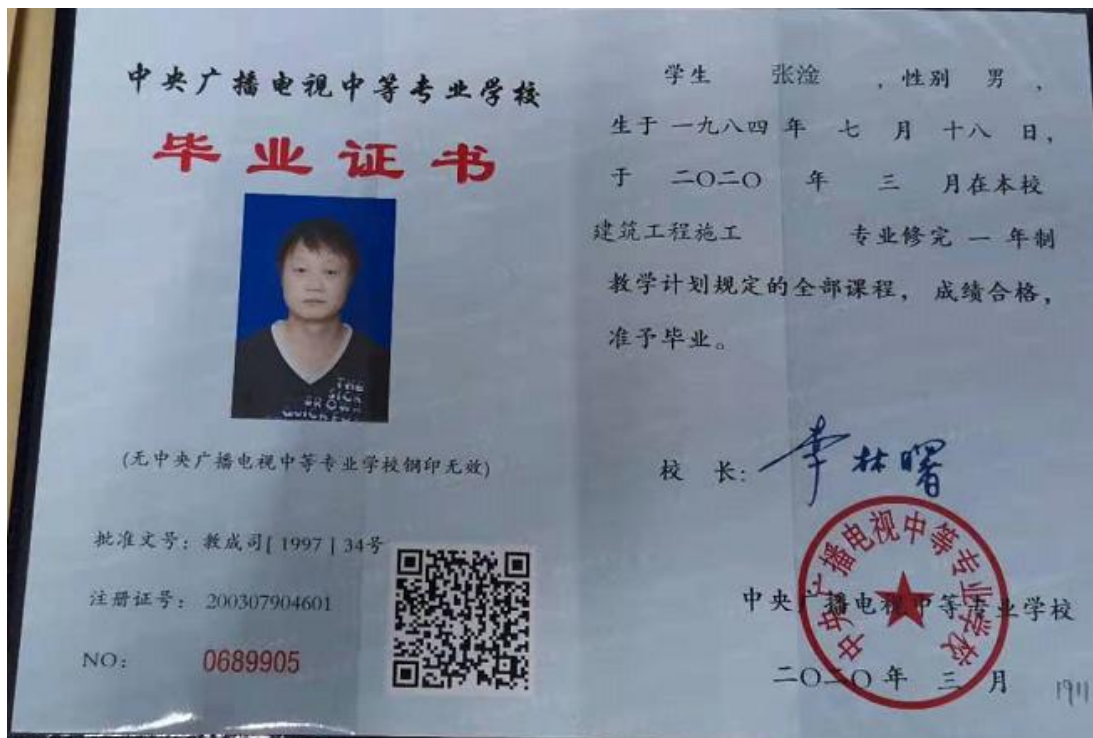 中央广播电视中等专业学校
毕业证书
THE
SICK
BROWN
QUICK
(无中央广播电视中等专业学校钢印无效)
批准文号：教成司[1997]34号
注册证号：200307904601
NO：0689905
学生 张淦 ，性别 男 ，
生于 一九八四 年 七 月 十八 日，
于 二〇二〇 年 三 月在本校
建筑工程施工 专业修完 一 年制
教学计划规定的全部课程，成绩合格，
准予毕业。
校 长：李林曙
中央广播电视中等专业学校
中央广播电视中等专业学校
二〇二〇 年 三 月
1911